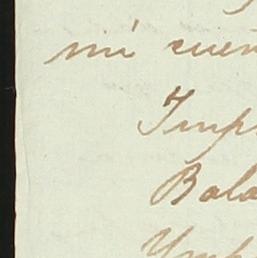 mi cuen
Imp
Bala
Ymp